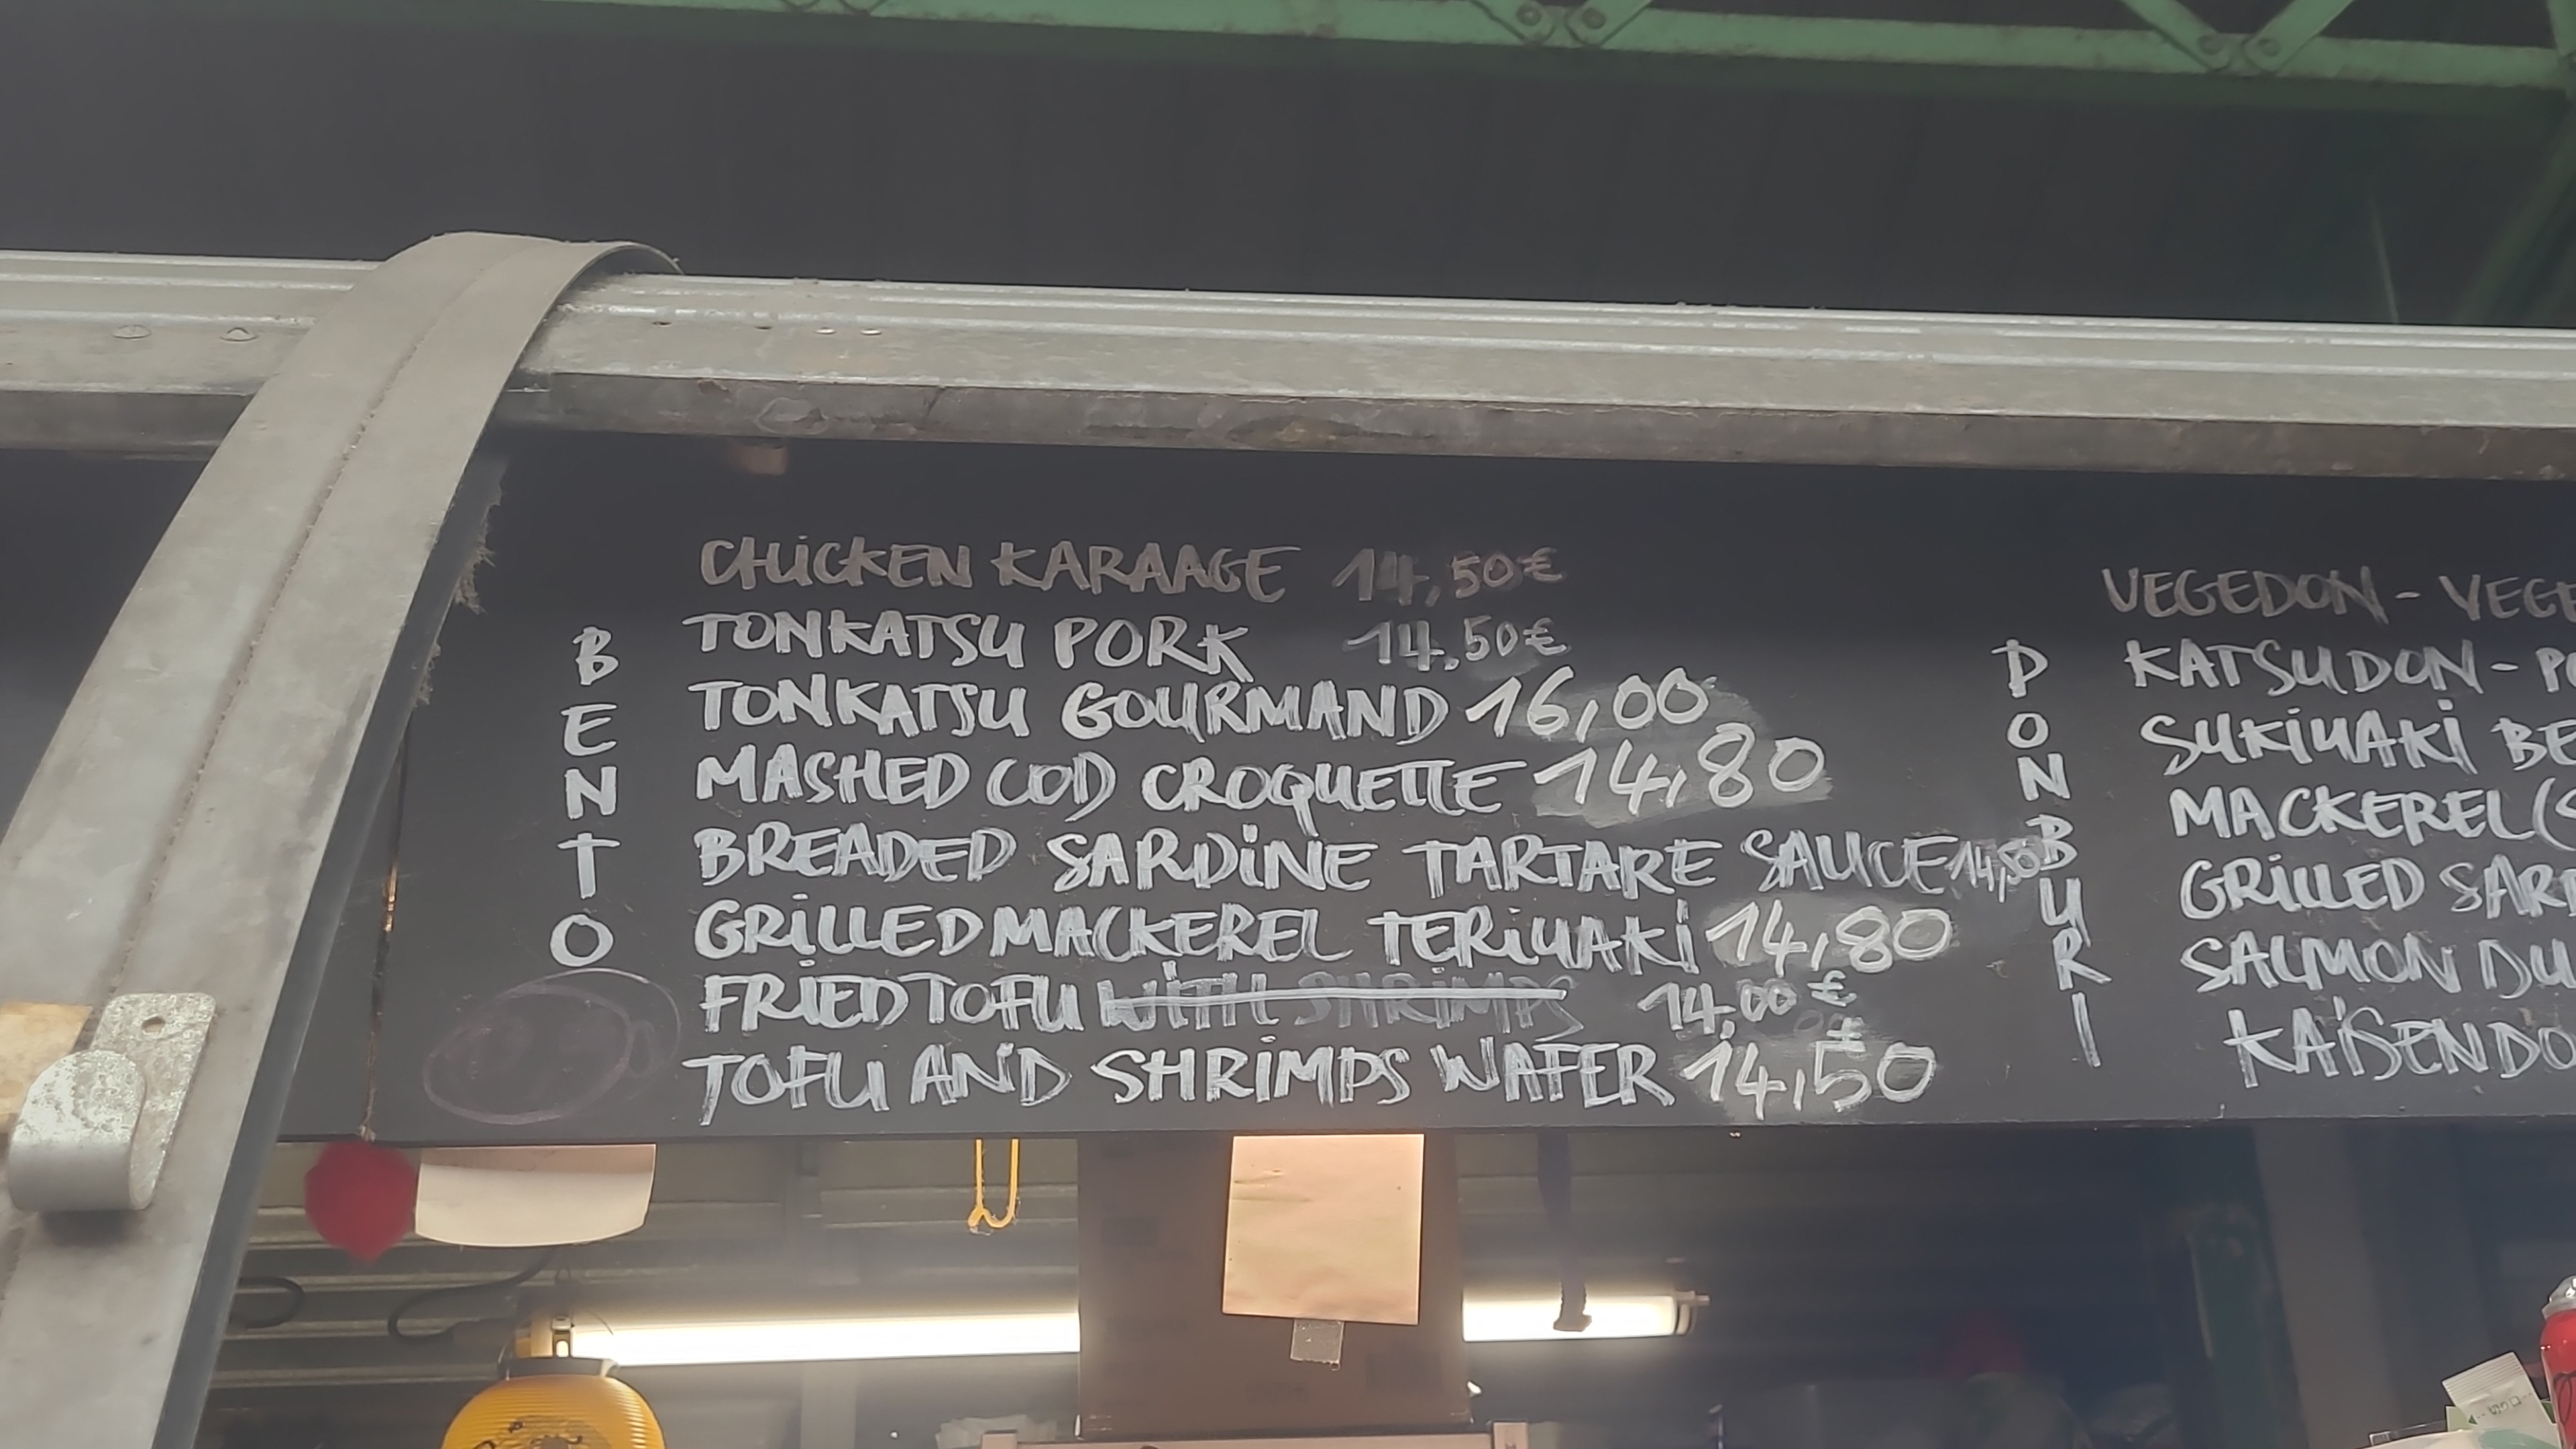 BENTO
CHICKEN KARAAGE 14,50€
TONKATSU PORK 14,50€
TONKATSU GOURMAND 16,00
MASHED COD CROQUETTE 14,80
BREADED SARDINE TARTARE SAUCE 14,50
GRILLED MACKEREL TERIYAKI 14,80
FRIED TOFU WITH SHRIMPS 14,00€
TOFU AND SHRIMPS WAFER 14,50
DONBURI
VEGEDON - VEGE
KATSUDON - PO
SUKIYAKI BE
MACKEREL (S
GRILLED SAR
SALMON DU
KAISENDO